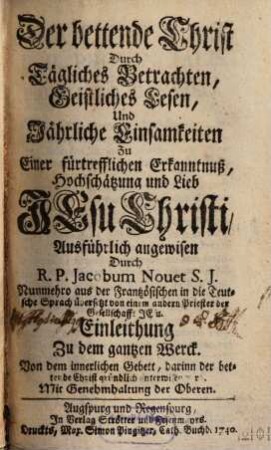 Der bettende Christ
Durch
Tägliches Betrachten,
Geistliches Lesen,
Und
Jährliche Einsamkeiten
Zu
Einer fürtrefflichen Erkanntnuß,
Hochschätzung und Lieb
JEsu Christi/
Ausführlich angewisen
Durch
R. P. Jacobum Nouet S. J.
Nunmehro aus der Frantzösischen in die Teut-
sche Sprach übersetzt von einem andern Priester der
Gesellschafft JEsu.
Einleithung
Zu dem gantzen Werck.
Von dem innerlichen Gebett, darinn der bet-
tende Christ gründlich
Mit Genehmhaltung der Oberen.
Augspurg und Regenspurg,
In Verlag Strötter
Druckts, Max. Simon Pingitzer, Cath. Buchd. 1740.